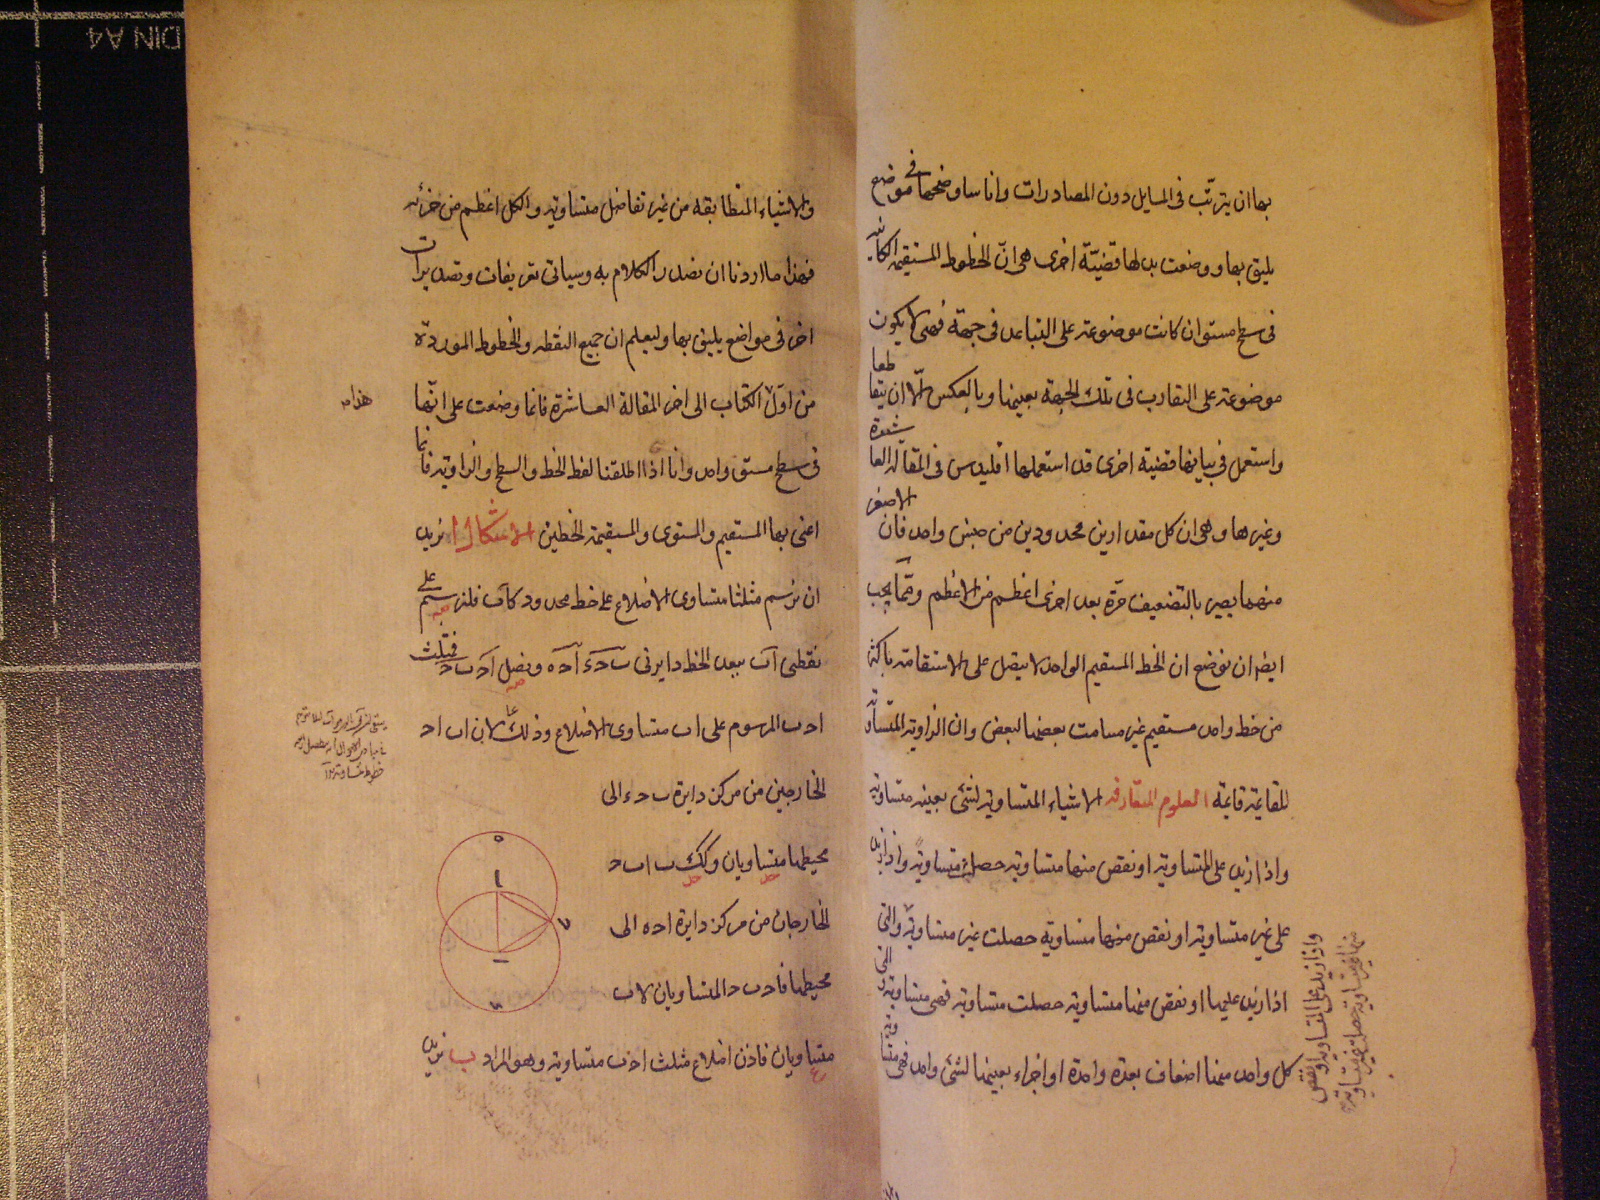 بها ان يترتّب فى المسايل دون المصادرات وانا ساوضحها فى موضع
يليق بها ووضعت بدلها قضيّة اخرى هى انّ الخطوط المستقيمة الكائنة
فى سطح مستو ان كانت موضوعة على التباعد فى جهة فهى لا يكون
موضوعة على التقارب فى تلك الجهة بعينها وبالعكس الّا ان يتقاطعا
واستعمل فى بيانها قضية اخرى قد استعملها اقليدس فى المقالة العاشرة
وغيرها وهى ان كل مقدارين محدودين من جنس واحد فان الاصغر
منهما يصير بالتضعيف مرّة بعد اخرى اعظم من الاعظم وممّا يجب
ايضا ان نوضح ان الخط المستقيم الواحد لا يتصل على الاستقامة باكثر
من خط واحد مستقيم غير مسامت بعضها لبعض وان الزاوية المتساوية
للقائمة قائمة العلوم المتعارفة الاشياء المتساوية لشئ بعينه متساوية
واذا زيد على المتساوية او نقص منها متساوية حصلت متساوية واذا زيد
على غير متساوية او نقص منها متساوية حصلت غير متساوية والتى
اذا زيد عليها او نقص منها متساوية حصلت متساوية فهى متساوية والتى
كل واحد منها اضعاف بعدة واحدة او اجزاء بعينها لشئ واحد فهى متساوية
واذا زيد على المتساوية او نقص
منها غير متساوية حصلت غير متساوية
والاشياء المتطابقة من غير تفاضل متساوية والكل اعظم من جزئه
فهذا ما اردنا ان نصدر الكلام به وسياتى تعريفات وتصديرات
اخر فى مواضع يليق بها وليعلم ان جميع النقطه والخطوط الموردة
من اوّل الكتاب الى اخر المقالة العاشرة فانما وضعت على انّها
فى سطح مستو واحد وانا اذا اطلقنا لفظ الخط والسطح والزاوية فانما
اعنى بها المستقيم والمستوى والمستقيمة الخطين الاشكال ا نريد
ان نرسم مثلثا متساوى الاضلاع على خط محدود كاب فلنرسم على
نقطتى ا ب ببعد الخط دايرتى ب ح ء ا ح ه ونصل ا ح ب ح فمثلث
ا ح ب المرسوم على اب متساوى الاضلاع وذلك لان اب ا ح
الخارجين من مركز دايرة ب ح ء الى
محيطها متساويان وكك ب ا ب ح
الخارجان من مركز دايرة ا ح ه الى
محيطها فا ح ب ح المتساويان لاب
متساويان فاذن اضلاع مثلث ا ح ب متساوية وهو المراد ب نريد